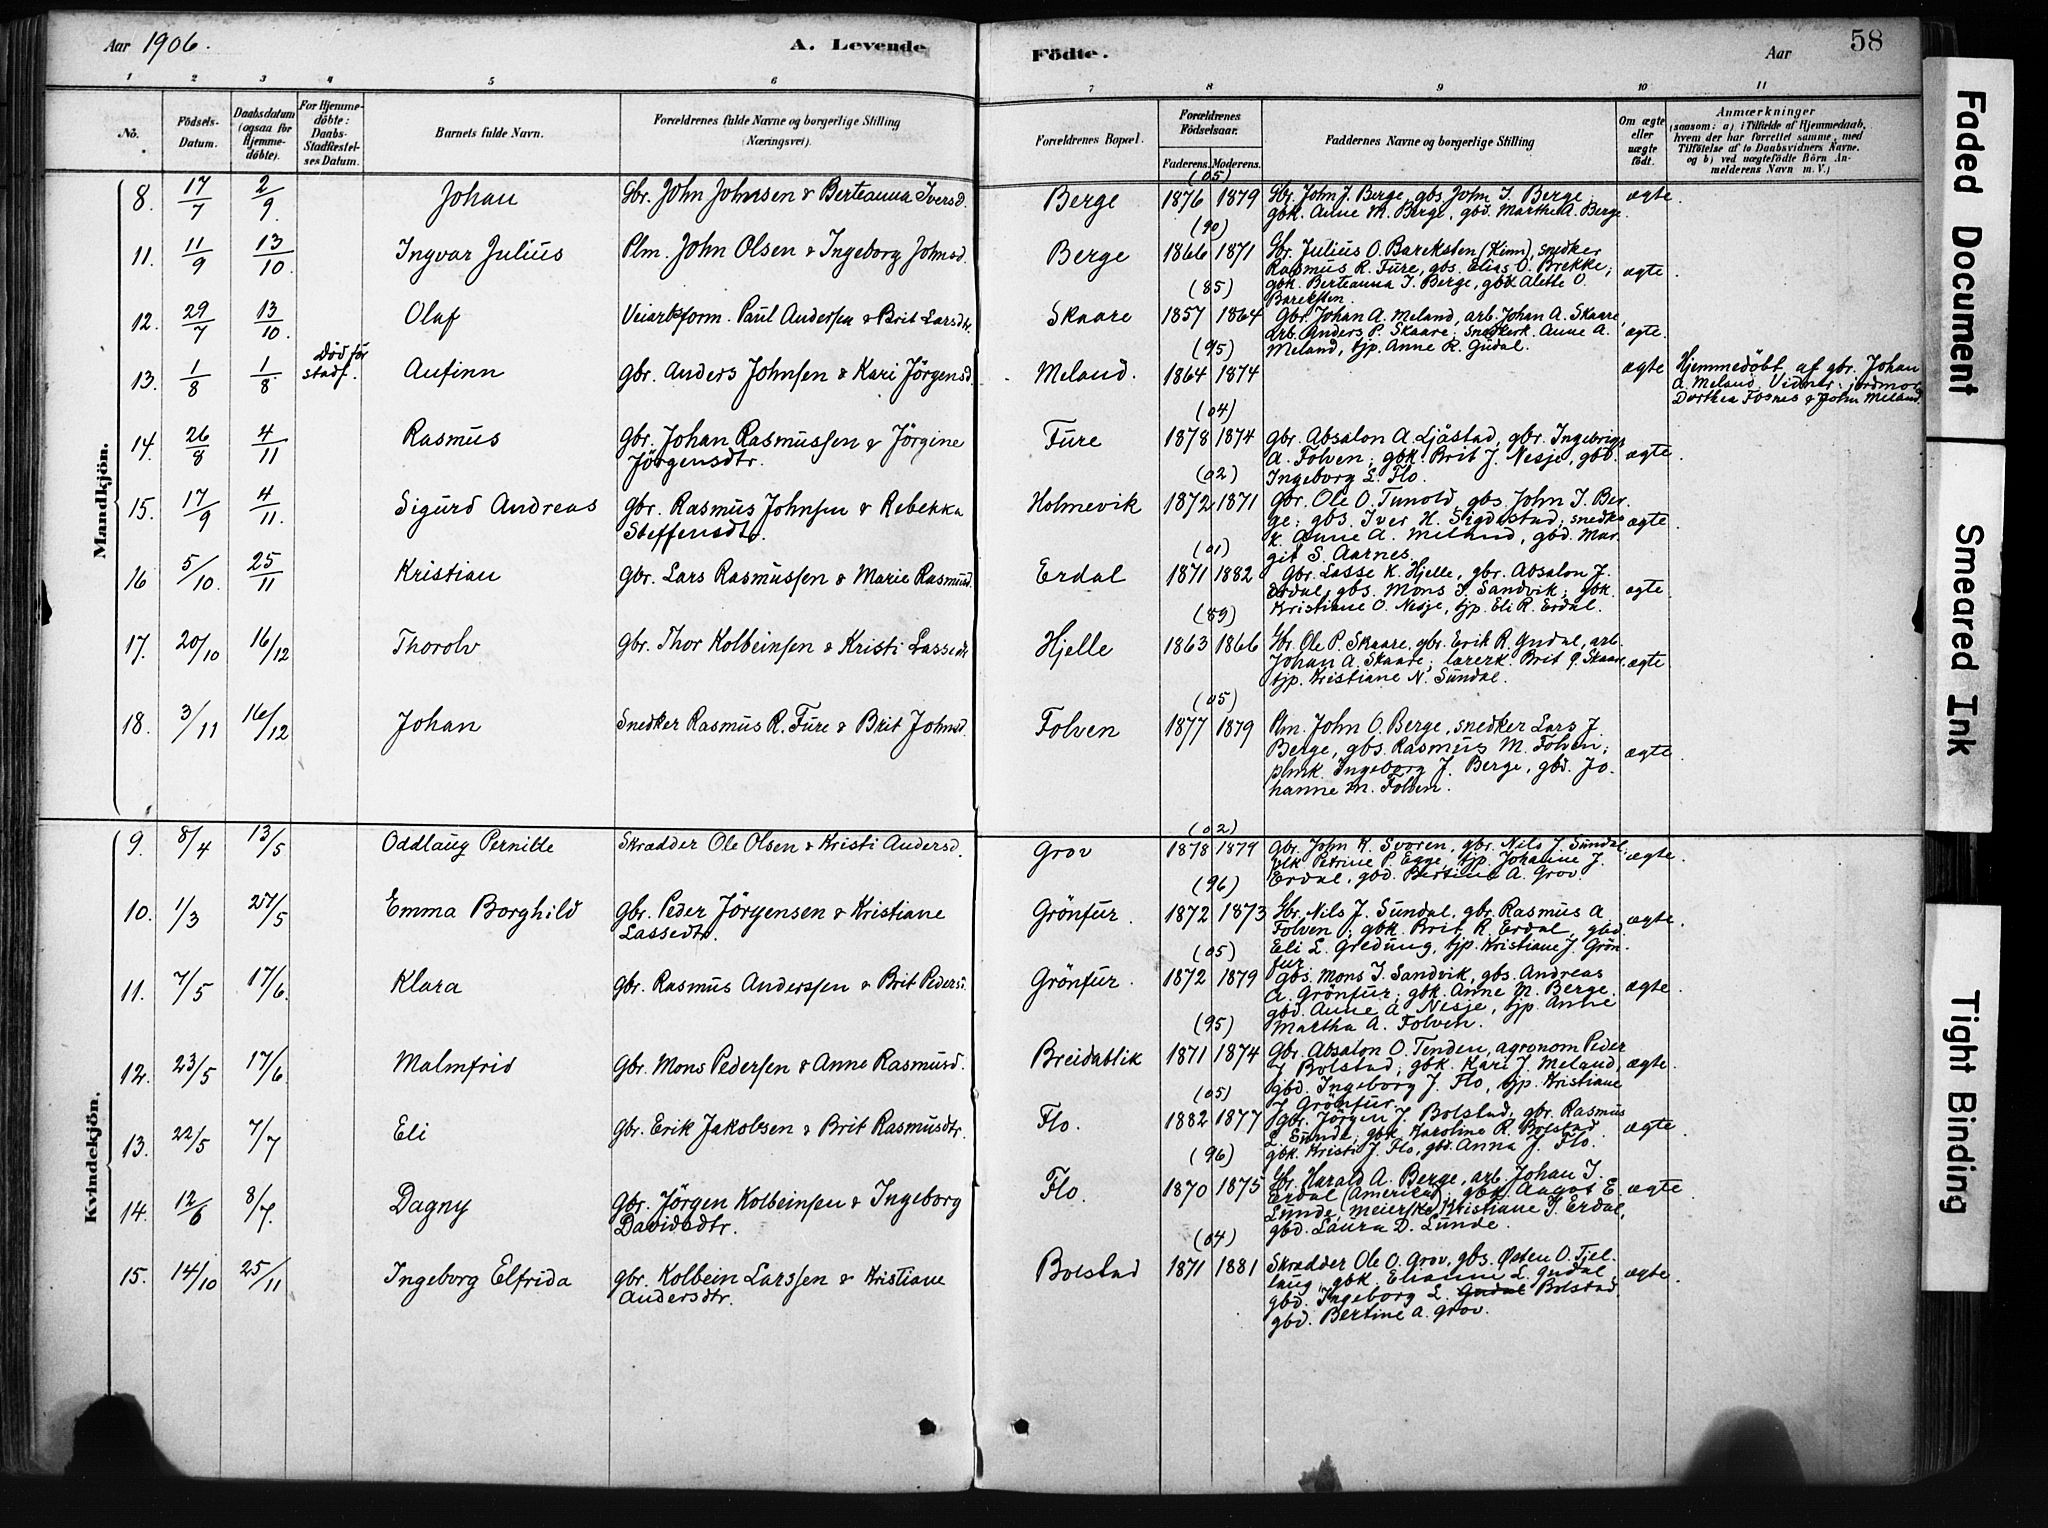 Aar 1906. A. Levende Födte. Aar 58
1 2 3 4 5 6 7 8 9 10 11
No.
Födsels-Datum.
Daabsdatum (ogsaa for Hjemme-döbte).
For Hjemme-döbte: Daabs-Stadfæstel-ses Datum.
Barnets fulde Navn.
Forældrenes fulde Navne og borgerlige Stilling (Næringsvei).
Forældrenes Bopæl.
Forældrenes Födselsaar.
Faderens. Moderens.
Faddernes Navne og borgerlige Stilling
Om ægte eller uægte födt.
Anmærkninger
(saasom: a) i Tilfælde af Hjemmedaab,
hvem der har forrettet samme, med
Tilföielse af to Daabsvidners Navne.
og b) ved uægtefödte Börn An-
melderens Navn m. V.)
Mandkjön.
8. 17/7 2/9 Johan Gbr. John Johnsen & Berteanna Iversd. Berge (05) 1876 1879 Gbr. John J. Berge, gbs. John I. Berge,
gbk. Anne M. Berge, gbd. Marthe A. Berge. ægte.
11. 11/9 13/10. Ingvar Julius Plm. John Olsen & Ingeborg Johnsd. Berge (90) 1866 1871 Gbr. Julius O. Bareksten (Kinn), snedker
Rasmus R. Fure, gbs. Elias O. Brekke;
gbk. Berteanna I. Berge, gbk. Alette O.
Bareksten. ægte.
12. 29/7 13/10. Olaf Veiarb.form. Paul Andersen & Brit Larsdtr. Skaare (85) 1857 1864 Gbr. Johan A. Meland, arb. Johan A. Skaare,
arb. Anders P. Skaare; snedkerk. Anne A.
Meland, tjp. Anne R. Gudal. ægte.
13. 1/8 1/8 Död för stadf. Anfinn gbr. Anders Johnsen & Kari Jörgensd. Meland. (95) 1864 1874 ægte Hjemmedöbt af gbr. Johan
A. Meland. Vidner: jordmor
Dorthea Fosnes & John Meland.
14. 26/8 4/11 Rasmus Gbr. Johan Rasmussen & Jörgine
Jörgensdtr. Fure (04) 1878 1874 gbr. Absalon A. Ljåstad, gbr. Ingebrigt
A. Folven; gbk. Brit J. Nesje, gbd.
Ingeborg L. Flo. ægte.
15. 17/9 4/11. Sigurd Andreas gbr. Rasmus Johnsen & Rebekka
Steffensdtr. Holmevik (02) 1872 1871 gbr. Ole O. Tunold, gbs. John I. Ber-
ge; gbs. Iver H. Sigdestad; snedke
k. Anne A. Meland, gbd. Mar-
git S. Aarnes. ægte.
16 5/10. 25/11 Kristian gbr. Lars Rasmussen & Marie Rasmusd. Erdal (01) 1871 1882 gbr. Lasse K. Hjelle, gbr. Absalon J.
Erdal, gbs. Mons I. Sandvik; gbk.
Kristiane O. Nesje, tjp. Eli R. Erdal. ægte.
17. 20/10 16/12 Thorolv gbr. Thor Kolbeinsen & Kristi Lassedtr. Hjelle (89) 1863 1866 Gbr. Ole P. Skaare, gbr. Erik R. Gudal, arb.
Johan A. Skaare; lærerk. Brit G. Skaare,
tjp. Kristiane N. Sundal. ægte
18. 3/11 16/12 Johan Snedker Rasmus R. Fure & Brit Johnsd. Folven (05) 1877 1879 Plm. John O. Berge, snedker Lars J.
Berge, gbs. Rasmus M. Folven;
plmk. Ingeborg J. Berge, gbd. Jo-
hanne M. Folven. ægte.
Kvindekjön.
9. 8/4 13/5 Oddlaug Pernille Skrædder Ole Olsen & Kristi Andersd. Grov (02) 1878 1879 gbr. John K. Svoren, gbr. Nils J. Sundal;
Petrine P. Egge, tjp. Johanne J.
Erdal, gbd. Bertine A. Grov. ægte.
10. 1/3 27/5 Emma Borghild gbr. Peder Jörgensen & Kristiane
Lassedtr. Grönfur. (96) 1872 1873 Gbr. Nils J. Sundal, gbr. Rasmus A
Folven; gbk. Brit R. Erdal, gbd.
Eli L. Gredung, tjp. Kristiane J. Grön-
fur. ægte.
11. 7/5 17/6. Klara gbr. Rasmus Anderssen & Brit Pedersd. Grönfur. (05) 1872 1879 gbs. Mons I. Sandvik, gbs. Andreas
A. Grönfur; gbk. Anne M. Berge,
gbd. Anne A. Nesje, tjp. Anne
Martha A. Folven. ægte.
12. 23/5 17/6 Malmfrid Gbr. Mons Pedersen & Anne Rasmusd. Breidablik (95) 1871 1874 Gbr. Absalon O. Tenden, agronom Peder
J Bolstad; gbk. Kari J. Meland,
gbd. Ingeborg J. Flo, tjp. Kristiane
J Grönfur. ægte.
13. 22/5 7/7 Eli gbr. Erik Jakobsen & Brit Rasmusdtr. Flo. (05) 1882 1877 gbr. Jörgen J. Bolstad, gbr. Rasmus
L. Sunde; gbk. Karoline R. Bolstad,
gbk. Kristi J. Flo, gbd. Anna J. Flo. ægte.
14. 12/6 8/7. Dagny Gbr. Jörgen Kolbeinsen & Ingeborg
Davidsdtr. Flo. (96) 1870 1875 Gbr. Harald A. Berge, arb. Johan I.
Erdal (Amerika); gbk. Aagot E.
Lunde, meierske Kristiane I. Erdal,
gbd. Laura D. Lunde. ægte.
15. 14/10 25/11 Ingeborg Elfrida gbr. Kolbein Larssen & Kristiane
Andersdtr. Bolstad (04) 1871 1881 Skrædder Ole O. Grov, gbs. Østen O. Tjel-
laug; gbk. Elianne L. Gudal,
gbd. Ingeborg L. Gudal Bolstad,
gbd. Bertine A. Grov. ægte.
Faded Document
Smeared Ink
Tight Binding